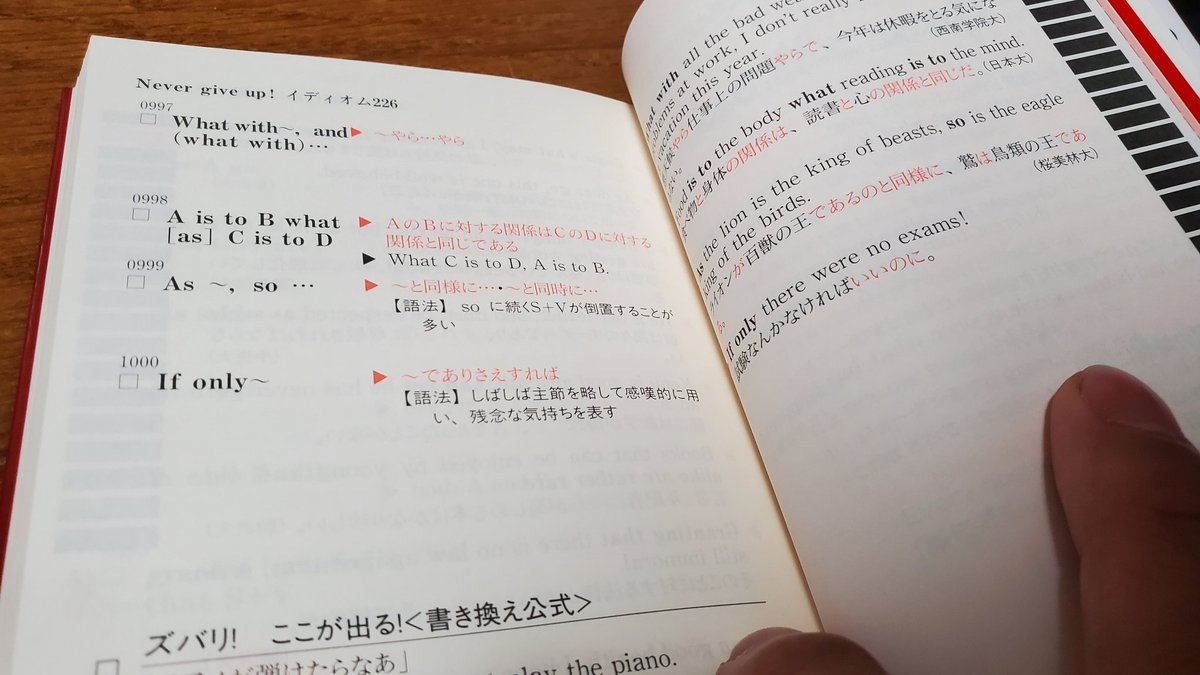 Never give up! イディオム226
0997
□ What with~, and ▶ ～やら…やら
(what with)…
0998
□ A is to B what ▶ AのBに対する関係はCのDに対する
[as] C is to D 関係と同じである
▶ What C is to D, A is to B.
0999
□ As ~, so … ▶ ～と同様に…・～と同時に…
【語法】 so に続くS+Vが倒置することが
多い
1000
□ If only~ ▶ ～でありさえすれば
【語法】しばしば主節を略して感嘆的に用
い、残念な気持ちを表す
ズバリ! ここが出る!<書き換え公式>
が弾けたらなあ」
play the piano.
with all the bad
at work, I don't really
this year.
やら仕事上の問題やらで、今年は休暇をとる気にな
(西南学院大)
is to the body what reading is to the mind.
物と身体の関係は、読書と心の関係と同じだ。(日本大)
the lion is the king of beasts, so is the eagle
king of the birds.
イオンが百獣の王であるのと同様に、鷲は鳥類の王であ
る。
(桜美林大)
If only there were no exams!
試験なんかなければいいのに。